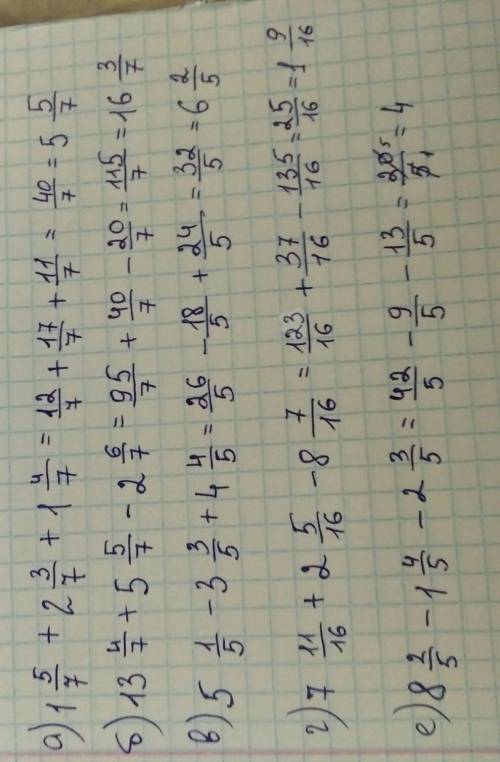 а) 1 5/7 + 2 3/7 + 1 4/7 = 12/7 + 17/7 + 11/7 = 40/7 = 5 5/7
б) 13 4/7 + 5 5/7 - 2 6/7 = 95/7 + 40/7 - 20/7 = 115/7 = 16 3/7
в) 5 1/5 - 3 3/5 + 4 4/5 = 26/5 - 18/5 + 24/5 = 32/5 = 6 2/5
г) 7 11/16 + 2 5/16 - 8 7/16 = 123/16 + 37/16 - 135/16 = 25/16 = 1 9/16
е) 8 2/5 - 1 4/5 - 2 3/5 = 42/5 - 9/5 - 13/5 = 20 5/5 1 = 4